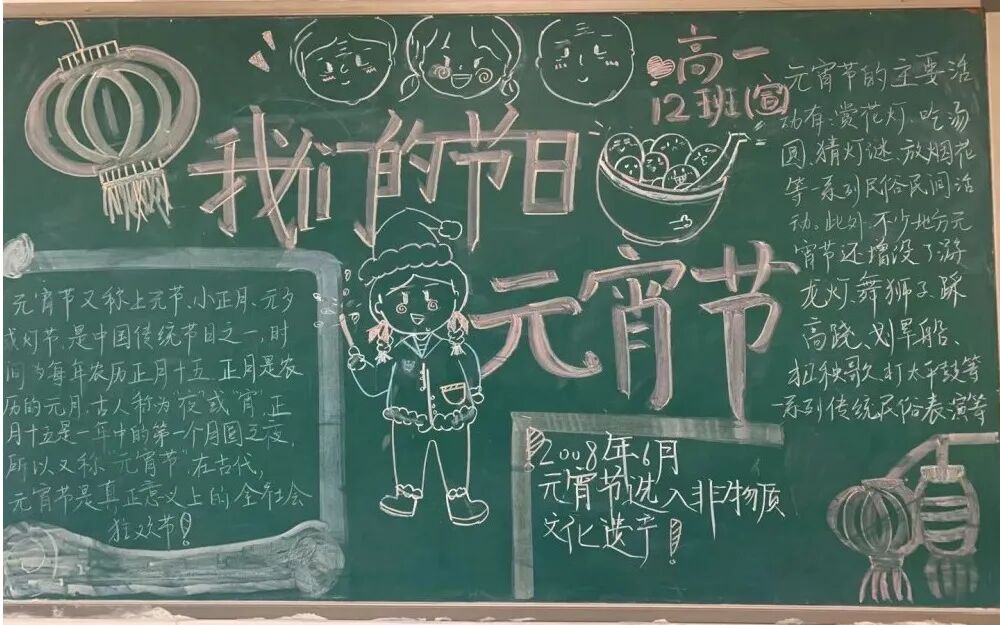 我们的节日
元宵节
高一
12班(宣)
元宵节又称上元节、小正月、元夕
或灯节,是中国传统节日之一,时
间为每年农历正月十五,正月是农
历的元月,古人称为“夜”或“宵”,正
月十五是一年中的第一个月圆之夜,
所以又称“元宵节”,在古代,
元宵节是真正意义上的全社会
狂欢节!
2008年6月
元宵节选入非物质
文化遗产!
元宵节的主要活
动有:赏花灯、吃汤
圆、猜灯谜、放烟花
等一系列民俗民间活
动。此外,不少地方元
宵节还增设了游
龙灯、舞狮子、踩
高跷、划旱船、
扭秧歌、打太平鼓等
一系列传统民俗表演等